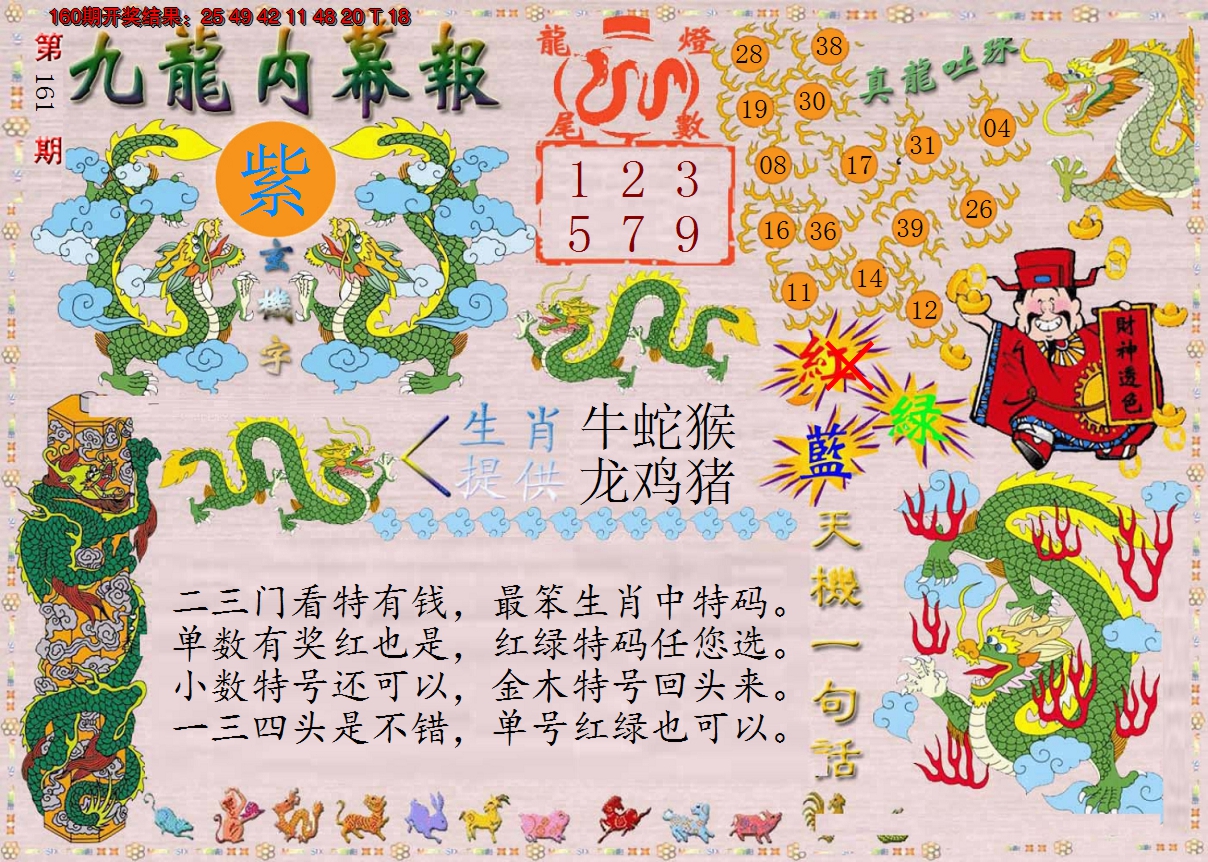 160期开奖结果：25 49 42 11 48 20 T 18
第161期
九龍内幕報
紫
玄機字
龍燈
尾數
1 2 3
5 7 9
真龍吐珠
28 38
19 30
31 04
08 17
16 36 39 26
11 14 12
財神透色
紅
绿
藍
生肖提供
牛蛇猴
龙鸡猪
天機一句話
二三门看特有钱，最笨生肖中特码。
单数有奖红也是，红绿特码任您选。
小数特号还可以，金木特号回头来。
一三四头是不错，单号红绿也可以。